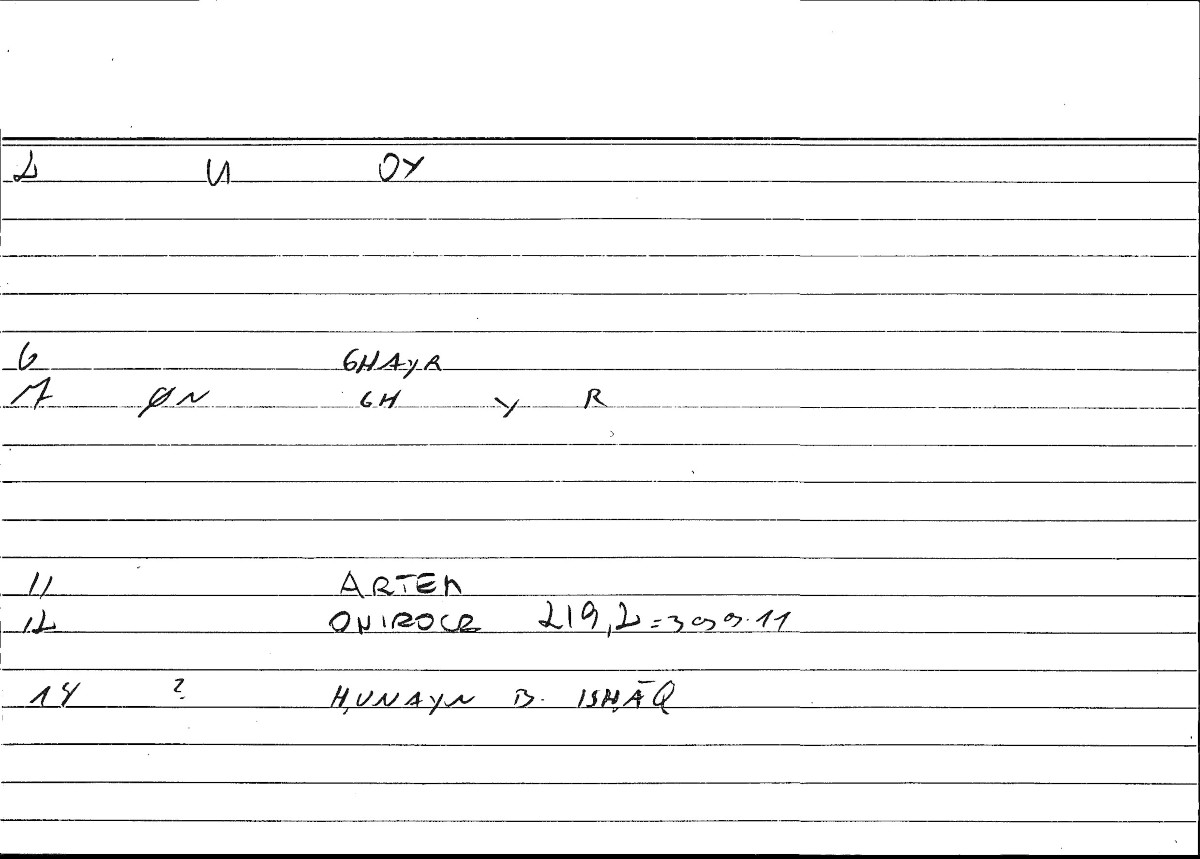 2 U OY
6 GHAYR
7 ØN GH Y R
11 ARTEM
12 ONIROCR 219,2=399.11
14 ? ḤUNAYN B. ISḤĀQ